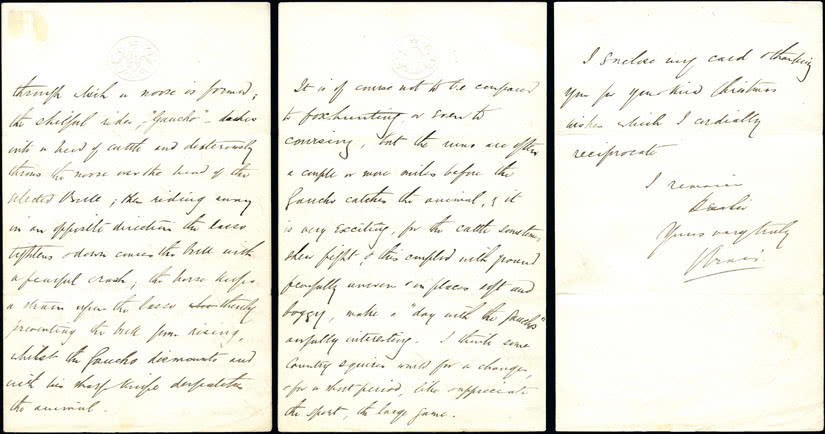 through which a noose is formed;
the skilful rider, - "Gaucho" - dashes
into a herd of cattle and dexterously
throws the noose over the head of the
selected Bull; then riding away
in an opposite direction the lasso
tightens & down comes the bull with
a fearful crash; the horse keeps
a strain upon the lasso thereby
preventing the bull from rising,
whilst the Gaucho dismounts and
with his sharp knife despatches
the animal.
It is of course not to be compared
to foxhunting or even to
coursing, but the runs are often
a couple or more miles before the
Gaucho catches the animal, & it
is very exciting, for the cattle sometimes
shew fight, & this coupled with ground
fearfully uneven & in places soft and
boggy, make a "day with the Gauchos"
awfully interesting. I think some
Country squires would for a change,
& for a short period, like appreciate
the sport, the large game.
I enclose my card & thanking
you for your kind Christmas
wishes which I cordially
reciprocate
I remain
Dear Sir
Yours very truly